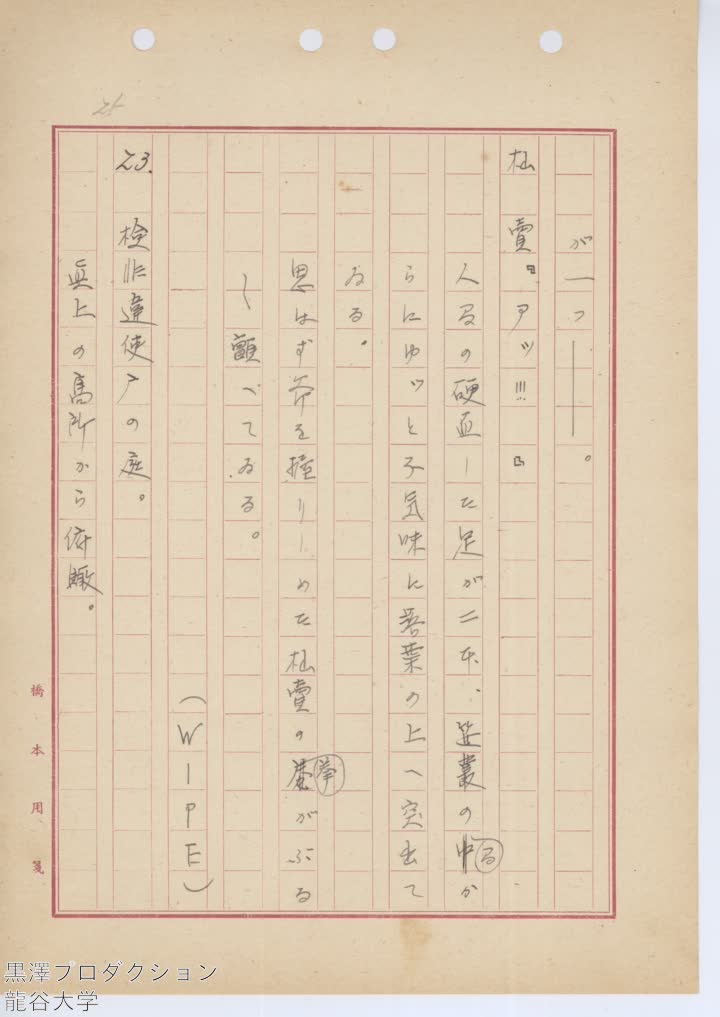 が一つ――。
杣賣『アッ!!!』
人間の硬直した足が二本、笹叢の間か
らにゆッと不気味に落葉の上へ突出て
ゐる。
思はず斧を握りしめた杣賣の拳がぶる
〱顫へてゐる。
(WIPE)
23. 検非違使庁の庭。
真上の高所から俯瞰。
橋本用箋
黒澤プロダクション
龍谷大学